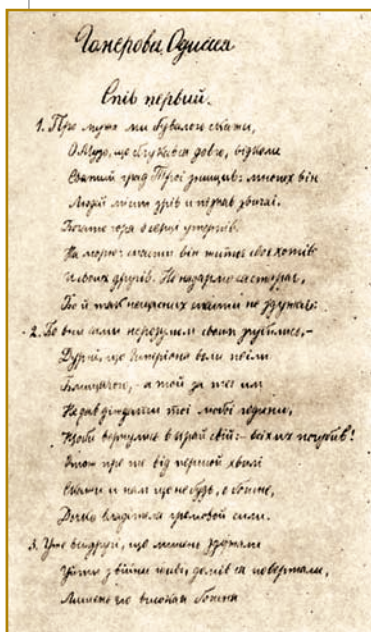 Гомерова Одиссея
Спів первый.
1. Про мужа ми бувалого скажи,
О Музо, що блукався довго, відколи
Святий град Трої знищив: многих він
Людий міст зрів и пізнав звичаї.
Богато горя в серци утерпів.
На морю: спасти він житьє своє хотів
И своих другів. Но надармо ся старав,
Бо й так нещасних спасти не здужав:
2. Бо они сами нерозумом своим згубились, –
Дурні, що Гиперіона воли поїли
Блищачого, – а той за те им
Не дав діждати тої любої години,
Щоби вернулись в край свій: – всіх их погубив!
про те від першой хвилі
Скажи и нам що небудь, о богине,
Дочко владителя громовой сили.
3. Уже всі другі, що лишень
Уйти з війни живі, домів ся повертали,
Лишень го богиня